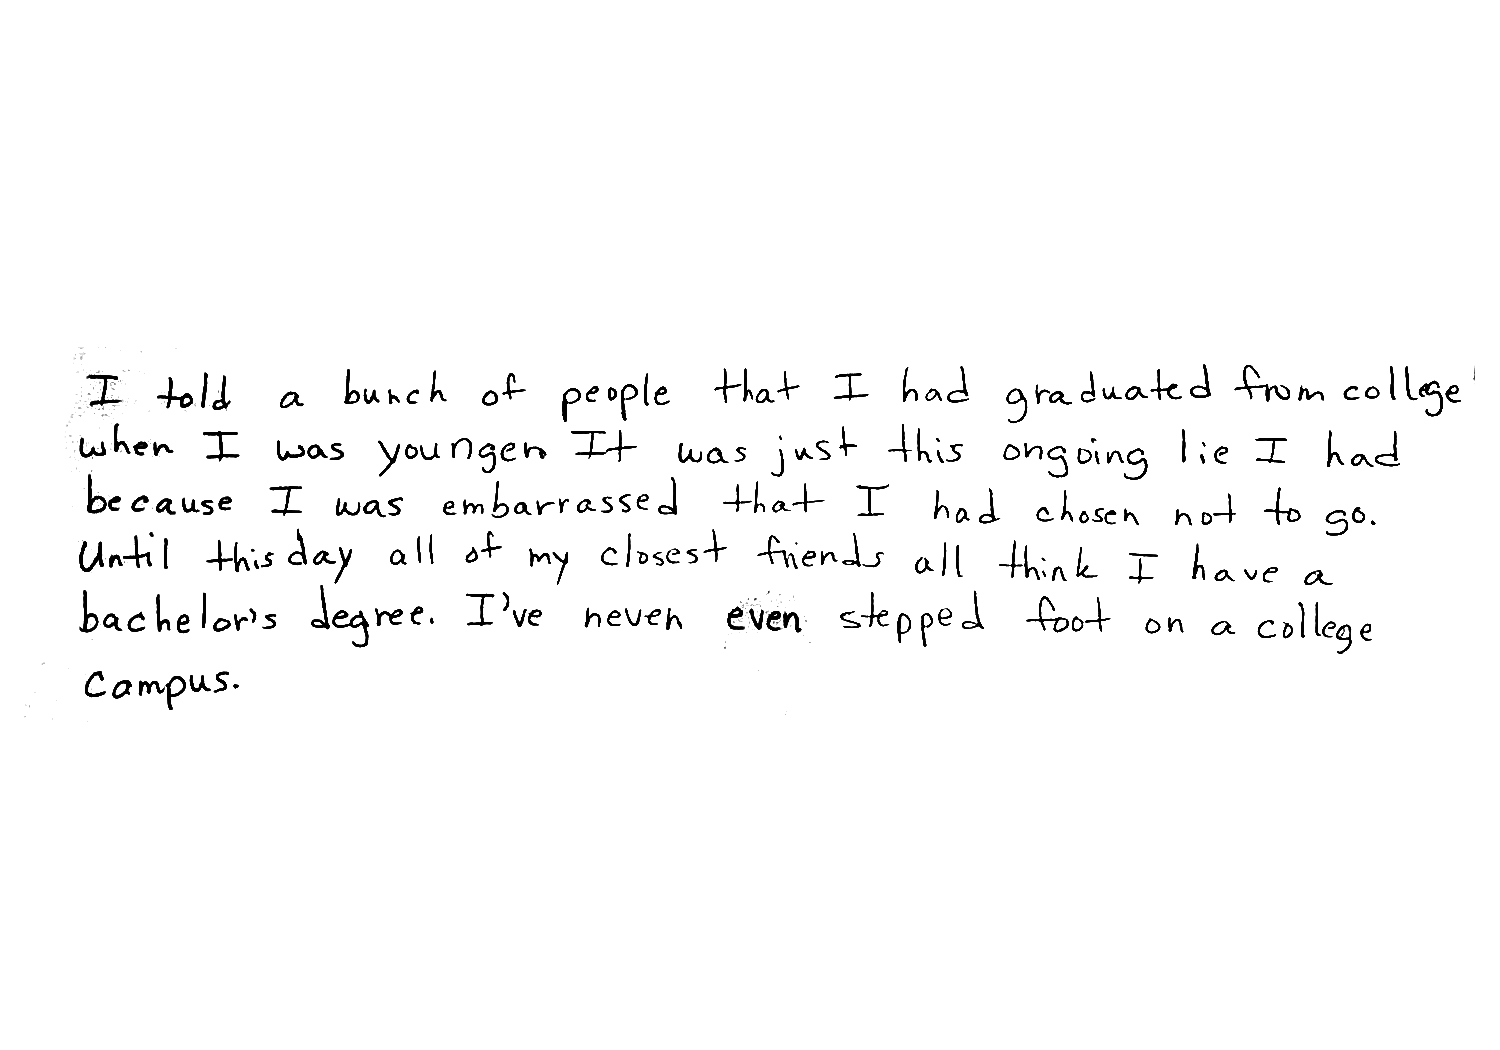 I told a bunch of people that I had graduated from college
when I was younger It was just this ongoing lie I had
because I was embarrassed that I had chosen not to go.
Until this day all of my closest friends all think I have a
bachelor's degree. I've never even stepped foot on a college
campus.